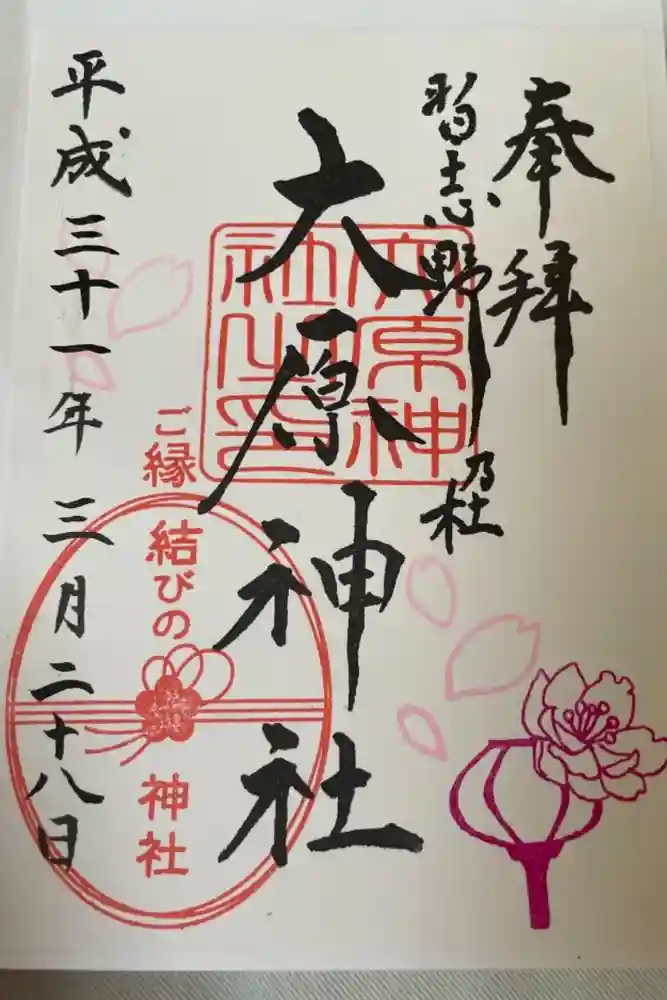 奉拝
習志野乃杜
大原神社
大原神
社之印
ご縁結びの
神社
平成三十一年三月二十八日